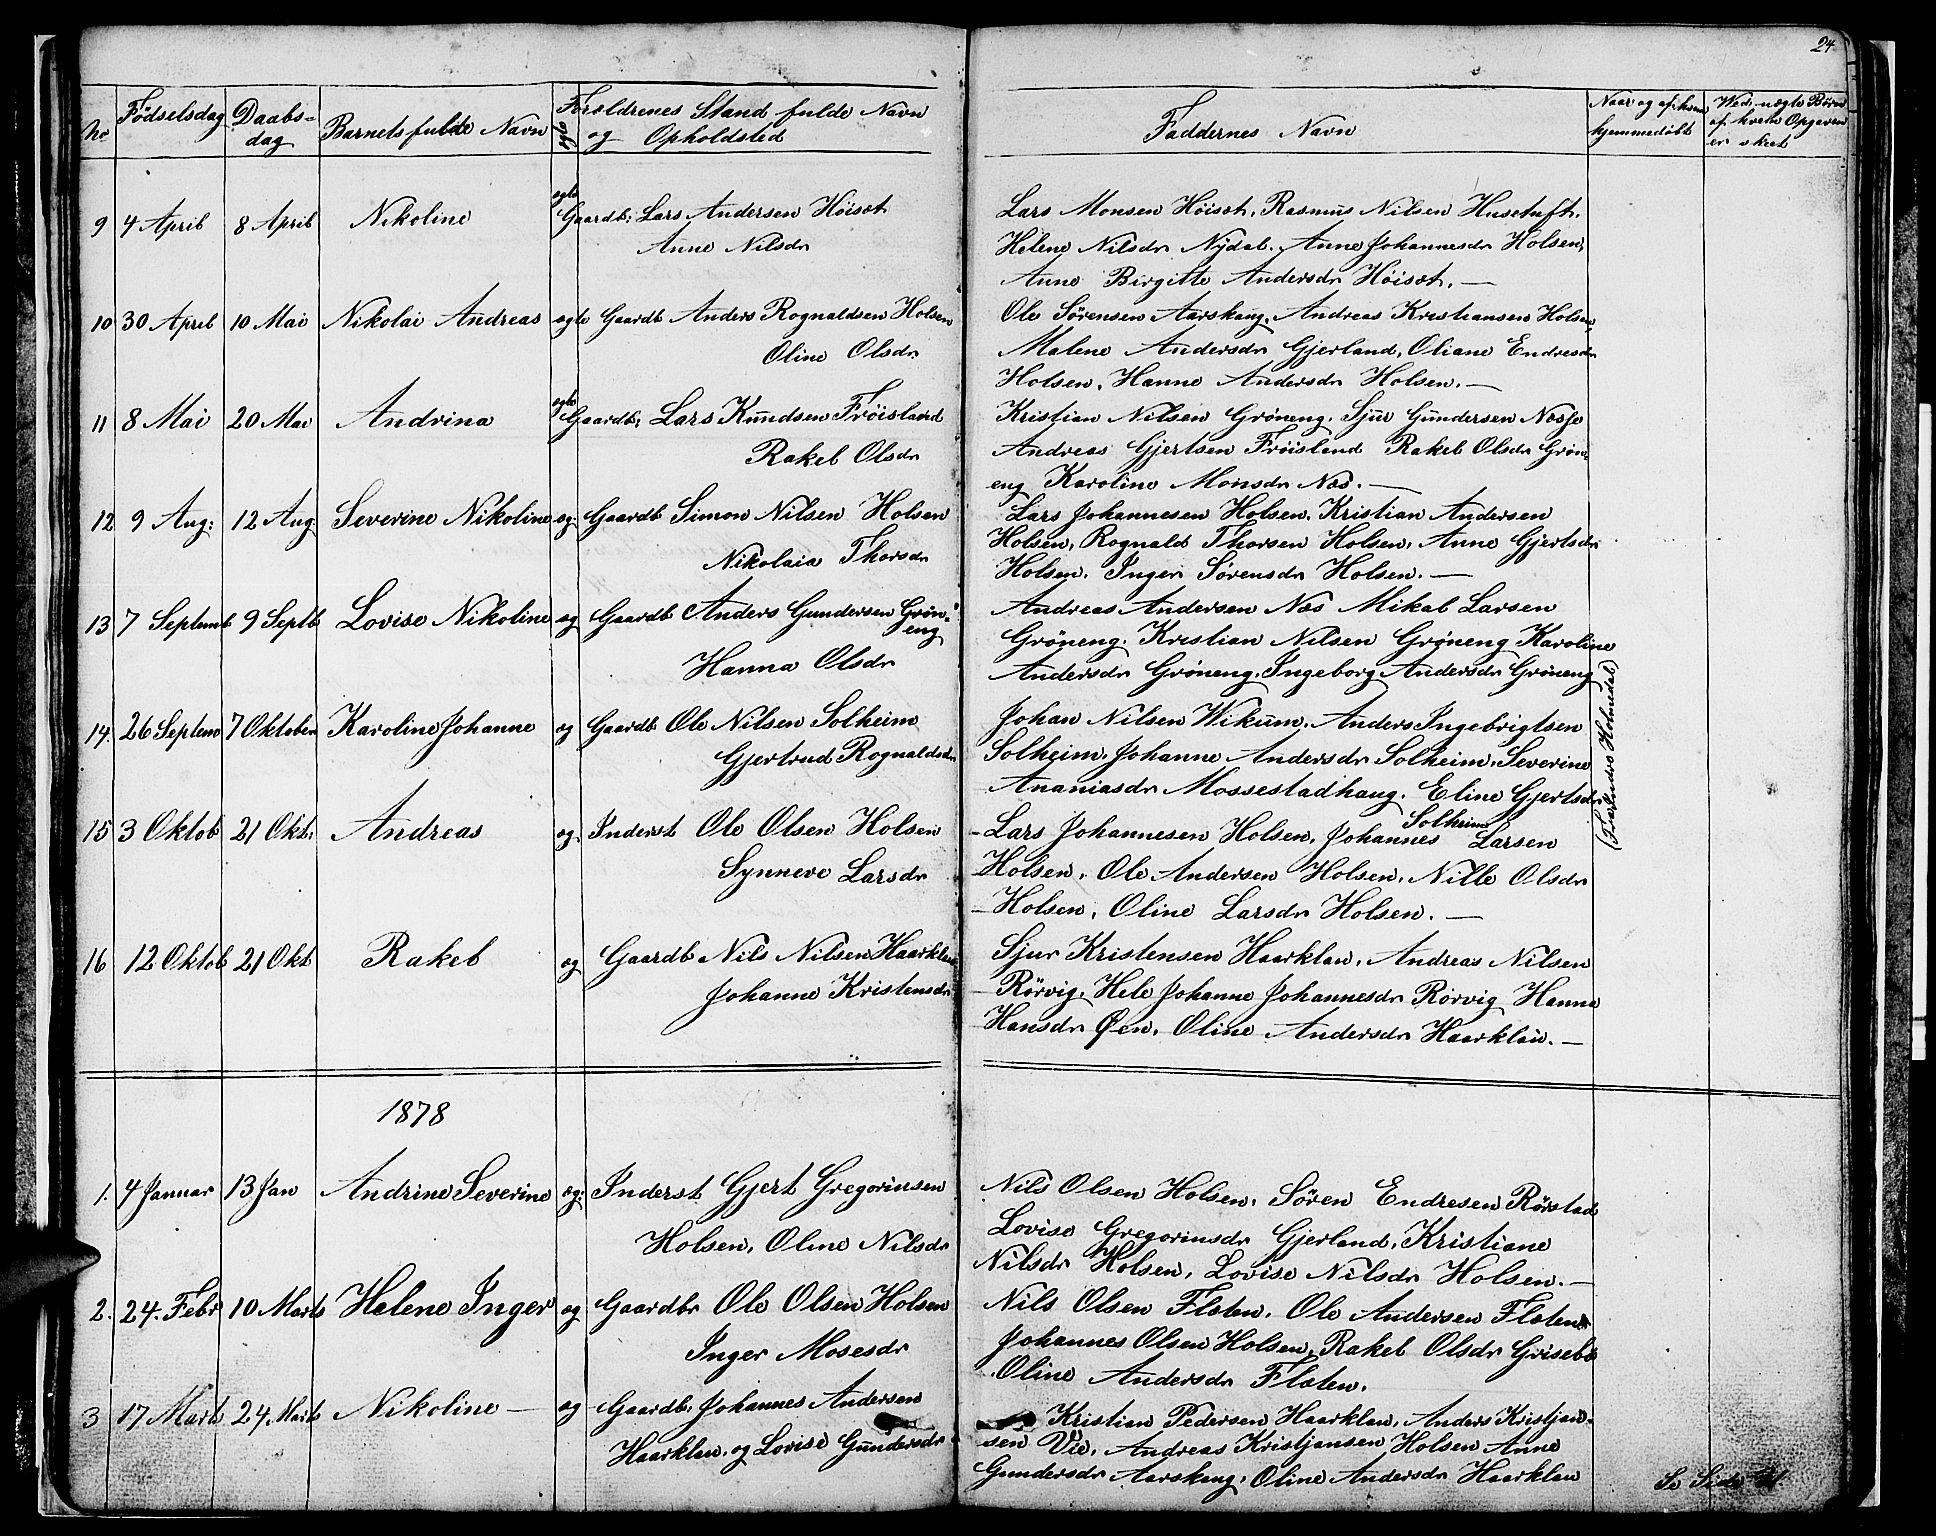 24
No
Födselsdag
Daabs-
dag
Barnets fulde Navn
Forældrenes Stand fulde Navn
og Opholdsted
Faddernes Navn
Naar og af hvem
hjemmedöbt
Wed uægte Börn
af hvem Opgaven
er skeet
9 4 April 8 April Nikoline ægte Gaardb: Lars Andersen Höiset
Anne Nilsdr
Lars Monsen Höiset, Rasmus Nilsen Husetuft,
Helene Nilsdr Nÿdal. Anne Johannesdr Holsen,
Anne Birgitte Andersdr Höiset. —
10 30 April 10 Mai Nikolai Andreas ægte Gaardb Anders Rognaldsen Holsen
Oline Olsdr
Ole Sörensen Aarskaug, Andreas Kristiansen Holsen,
Malene Andersdr Gjerland, Oliane Endresdr
Holsen, Hanne Andersdr Holsen. —
11 8 Mai 20 Mai Andrina ægte Gaardb; Lars Knudsen Fröisland
Rakel Olsdr
Kristian Nilsen Gröneng, Sjur Gundersen Næsse
Andreas Gjertsen Fröisland Rakel Olsdr Grön-
eng Karoline Monsdr Næs. —
12 9 Aug: 12 Aug Severine Nikoline æg Gaardb Simon Nilsen Holsen
Nikolaia Thorsdr
Lars Johannesen Holsen, Kristian Andersen
Holsen, Rognald Thorsen Holsen, Anne Gjertsdr
Holsen. Inger Sörensdr Holsen. —
13 7 Septemb 9 Septb Lovise Nikoline æg Gaardb Anders Gundersen Grön-
eng
Hanna Olsdr
Andreas Andersen Næs Mikal Larsen
Gröneng. Kristian Nilsen Gröneng Karoline
Andersdr Gröneng, Ingeborg Andersdr Gröneng
14. 26 Septem 7 Oktober Karoline Johanne æg Gaardb Ole Nilsen Solheim
Gjertrud Rognaldsdr
Johan Nilsen Wikum. Anders Ingebrigtsen
Solheim, Johanne Andersdr Solheim, Severine
Ananiasdr Mossestadhaug. Eline Gjertsdr
Solheim
15 3 Oktob 21 Okt: Andreas æg Inderst Ole Olsen Holsen
Synneve Larsdr
Lars Johannesen Holsen, Johannes Larsen
Holsen. Ole Andersen Holsen, Nille Olsdr
Holsen, Oline Larsdr Holsen. —
16 12 Oktob 21 Okt Rakel æg Gaardb Nils Nilsen Haarklau
Johanne Kristensdr
Sjur Kristensen Haarklau, Andreas Nilsen
Rörvig, Hele Johanne Johannesdr Rörvig Hanna
Hansdr Øen, Oline Andersdr Haarklau. —
1878
1. 4 Januar 13 Jan Andrine Severine æg: Inderst Gjert Gregoriusen
Holsen, Oline Nilsdr
Nils Olsen Holsen, Sören Endresen Rörstad
Lovise Gregoriusdr Gjerland, Kristiane
Nilsdr Holsen, Lovise Nilsdr Holsen. —
2. 24. Febr 10 Marts Helene Inger æg Gaardbr Ole Olsen Holsen
Inger Mosesdr
Nils Olsen Flaten, Ole Andersen Flaten
Johannes Olsen Holsen, Rakel Olsdr Grisebö
Oline Andersdr Flaten.
3 17 Marts 24 Marts Nikoline — æg Gaardb: Johannes Andersen
Haarklau, og Lovise Gundersdr
Kristian Pedersen Haarklau, Anders Kristjan-
sen Vie, Andreas Kristjansen Holsen Anne
Gundersdr Aarskaug, Oline Andersdr Haarklau
Se Side